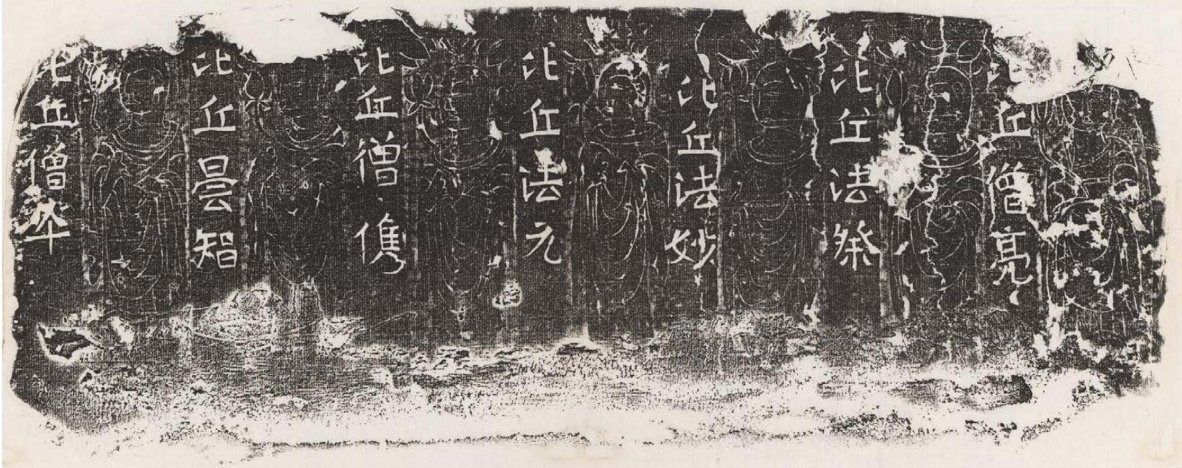 比丘僧亮
比丘法祭
比丘法妙
比丘法元
比丘僧儁
比丘曇智
比丘僧